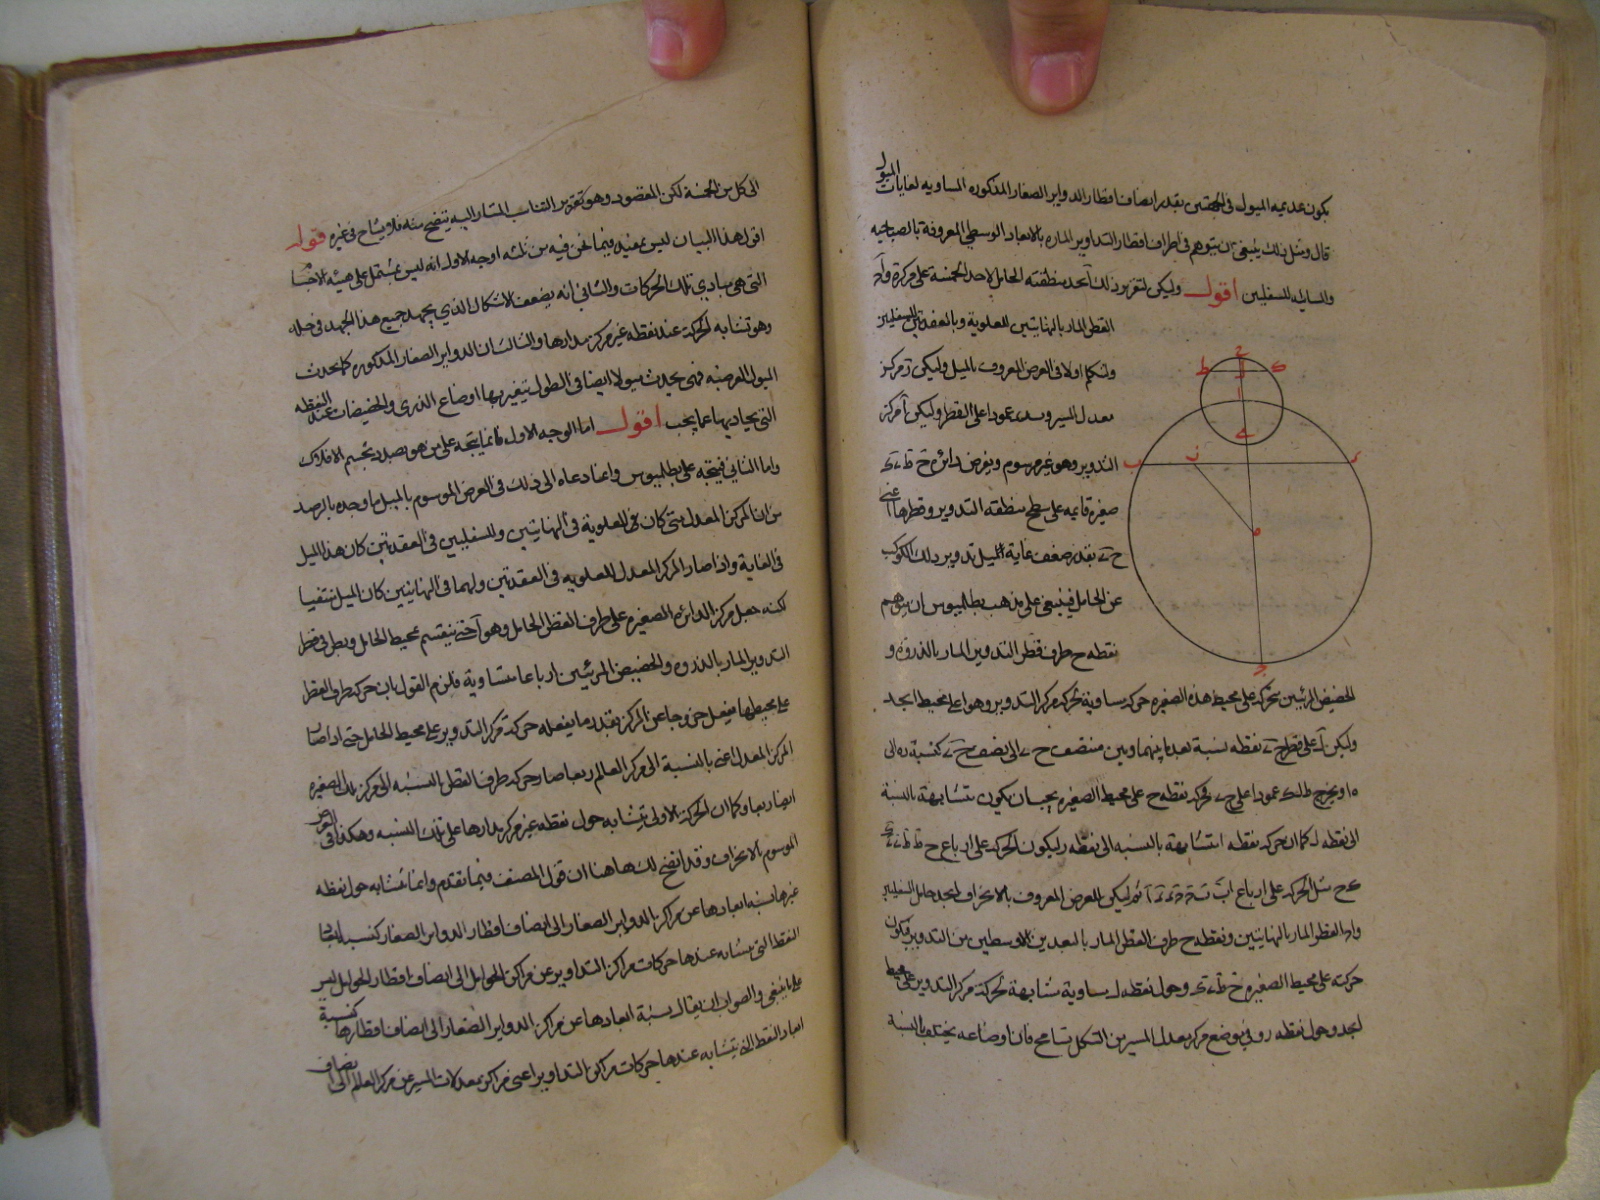 الميول
يكون عديمه الميول في الجهتين بقدر انصاف اقطار الدواير الصغار المذكوره المساويه لغايات
قال ومثل ذلك ينبغى ان يتوهم في اطراف اقطار التداوير الماره بالابعاد الوسطى المعروفة بالصباحيه
والمسائيه للسفليين اقول وليكن لتقرير ذلك ابجد منطقته الحامل لاحد الخمسة على مركزه واد
القطر المار بالنهايتين للعلوية وبالعقدتين للسفليين
ولنتكلم اولا في العرض المعروف بالميل وليكن ز مركز
معدل المسير و عمودا على القطر وليكن آ مركز
التدوير وهو غير مرسوم ويفرض دائرة ح ط
صغيره قايمه على سطح منطقته التدوير وقطرها اعنى
ح بقدر ضعف غاية الميل تدوير ذلك الكوكب
عن الحامل فينبغى على مذهب بطلميوس ان يتوهم
نقطه ح طرف قطر التدوير المار بالذروه و
الحضيض المرئيين متحركه على محيط هذه الصغيره حركه مساوية لحركه مركز التدوير وهو ا على محيط ابجد
وليكن ل على قطر ح نقطه نسبة بعد ما بينهما وبين منتصف ح الى نصف ح كنسبة ره الى
ه ا ويخرج ط ل ك عمودا على ح فحركه نقطه ح على محيط الصغيره يجب ان يكون متشابهة بالنسبة
الى نقطه ل كما ان حركه نقطه ا متشابهة بالنسبه الى نقطه ر ليكون الحركه على ارباع ح ط
ك ح مثل الحركه على ارباع اب ثم ليكن للعرض المعروف بالانحراف ابجد حامل السفليين
واد القطر المار بالنهايتين ونقطه ح طرف القطر المار بالبعدين الاوسطين من التدوير فيكون
حركته على محيط الصغيره ح ط وحول نقطه ل مساوية مشابهة لحركة مركز التدوير على محيط
ابجد وحول نقطه ر وفي موضع مركز معدل المسير من الشكل تسامح فان اوضاعه يختلف بالنسبة
ح
ط
ك
ل
ا
ب
ز
ر
ه
د
الى كل من الخمسة لكن المقصود وهو تقرير التناسب المشار اليه يتضح منه فلا يشاح في غيره قوله
اقول هذا البيان ليس بمفيد فيما نحن فيه من ثلثه اوجه الاول انه ليس بمشتمل على هيئه الاجسام
التى هى مبادي تلك الحركات والثانى انه يضعف الاشكال الذي يجهد جميع هذا الجهد في حله
وهو تشابه الحركة عند نقطه غير مركز مدارها والثالث ان الدواير الصغار المذكوره كما يحدث
الميول العرضيه فهى يحدث ميولا ايضا في الطول يتغير بها اوضاع الذرى والحضيضات عند النقطه
التى يحاذيها عما يجب اقول اما الوجه الاول فانما يتجه على من هو بصدد تجسيم الافلاك
واما الثانى فيتجه على بطلميوس وانما دعاه الى ذلك في العرض الموسوم بالميل ما وجده بالرصد
من ان المركز المعدل متى كان في العلوية في النهايتين وللسفليين في العقدتين كان هذا الميل
في الغاية واذا صار المركز المعدل للعلويه في العقدتين ولهما في النهايتين كان الميل منتفيا
لكنه جعل مركز الدائره الصغيره على طرف القطر الحامل وهو آ حتى ينقسم محيط الحامل
التدوير المار بالذروه والحضيض المرئيين ارباعا متساوية فلزم القول بان حركه طرف القطر
على محيطها يفعل خروجا عن المركز بقدر ما يفعله حركه مركز التدوير على محيط الحامل حتى اذا صار
المركز المعدل اعنى بالنسبة الى مركز العالم ربعا صار حركه طرف القطر بالنسبه الى مركز تلك الصغيره
ايضا ربعا وكما ان الحركة الاولى يتشابه حول نقطه غير مركز مدارها على تلك النسبه وهكذا في العرض
الموسوم بالانحراف وقد اتضح لك هاهنا ان قول المصنف فيما تقدم وانما تشابه حول نقطه
غيرها نسبه ابعادها عن مراكز الدواير الصغار الى انصاف اقطار الدواير الصغار كنسبه ابعاد
النقط التى يتشابه عندها حركات مراكز التداوير عن مراكز الحوامل الى انصاف اقطار الحوامل ليس
على ما ينبغى والصواب ان يقال نسبة ابعادها عن مراكز الدواير الصغار الى انصاف اقطارها كنسبة
ابعاد النقط التى يتشابه عندها حركات مراكز التداوير اعنى مراكز معدلات المسير عن مركز العالم الى انصاف